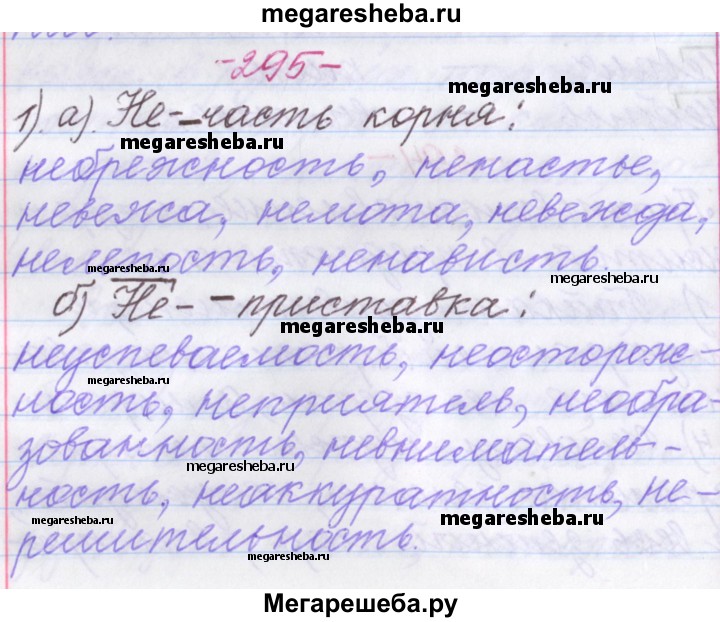 megaresheba.ru
-295-
megaresheba.ru
1). а). Не- - часть корня:
megaresheba.ru
небрежность, ненастье,
невежа, немота, невежда,
нелепость, ненависть.
megaresheba.ru
megaresheba.ru
б) Не- - приставка:
megaresheba.ru
неуспеваемость, неосторож-
megaresheba.ru
ность, неприятель, необра-
зованность, невниматель-
megaresheba.ru
ность, неаккуратность, не-
megaresheba.ru
megaresheba.ru
решительность.
megaresheba.ru
Мегарешеба.ру